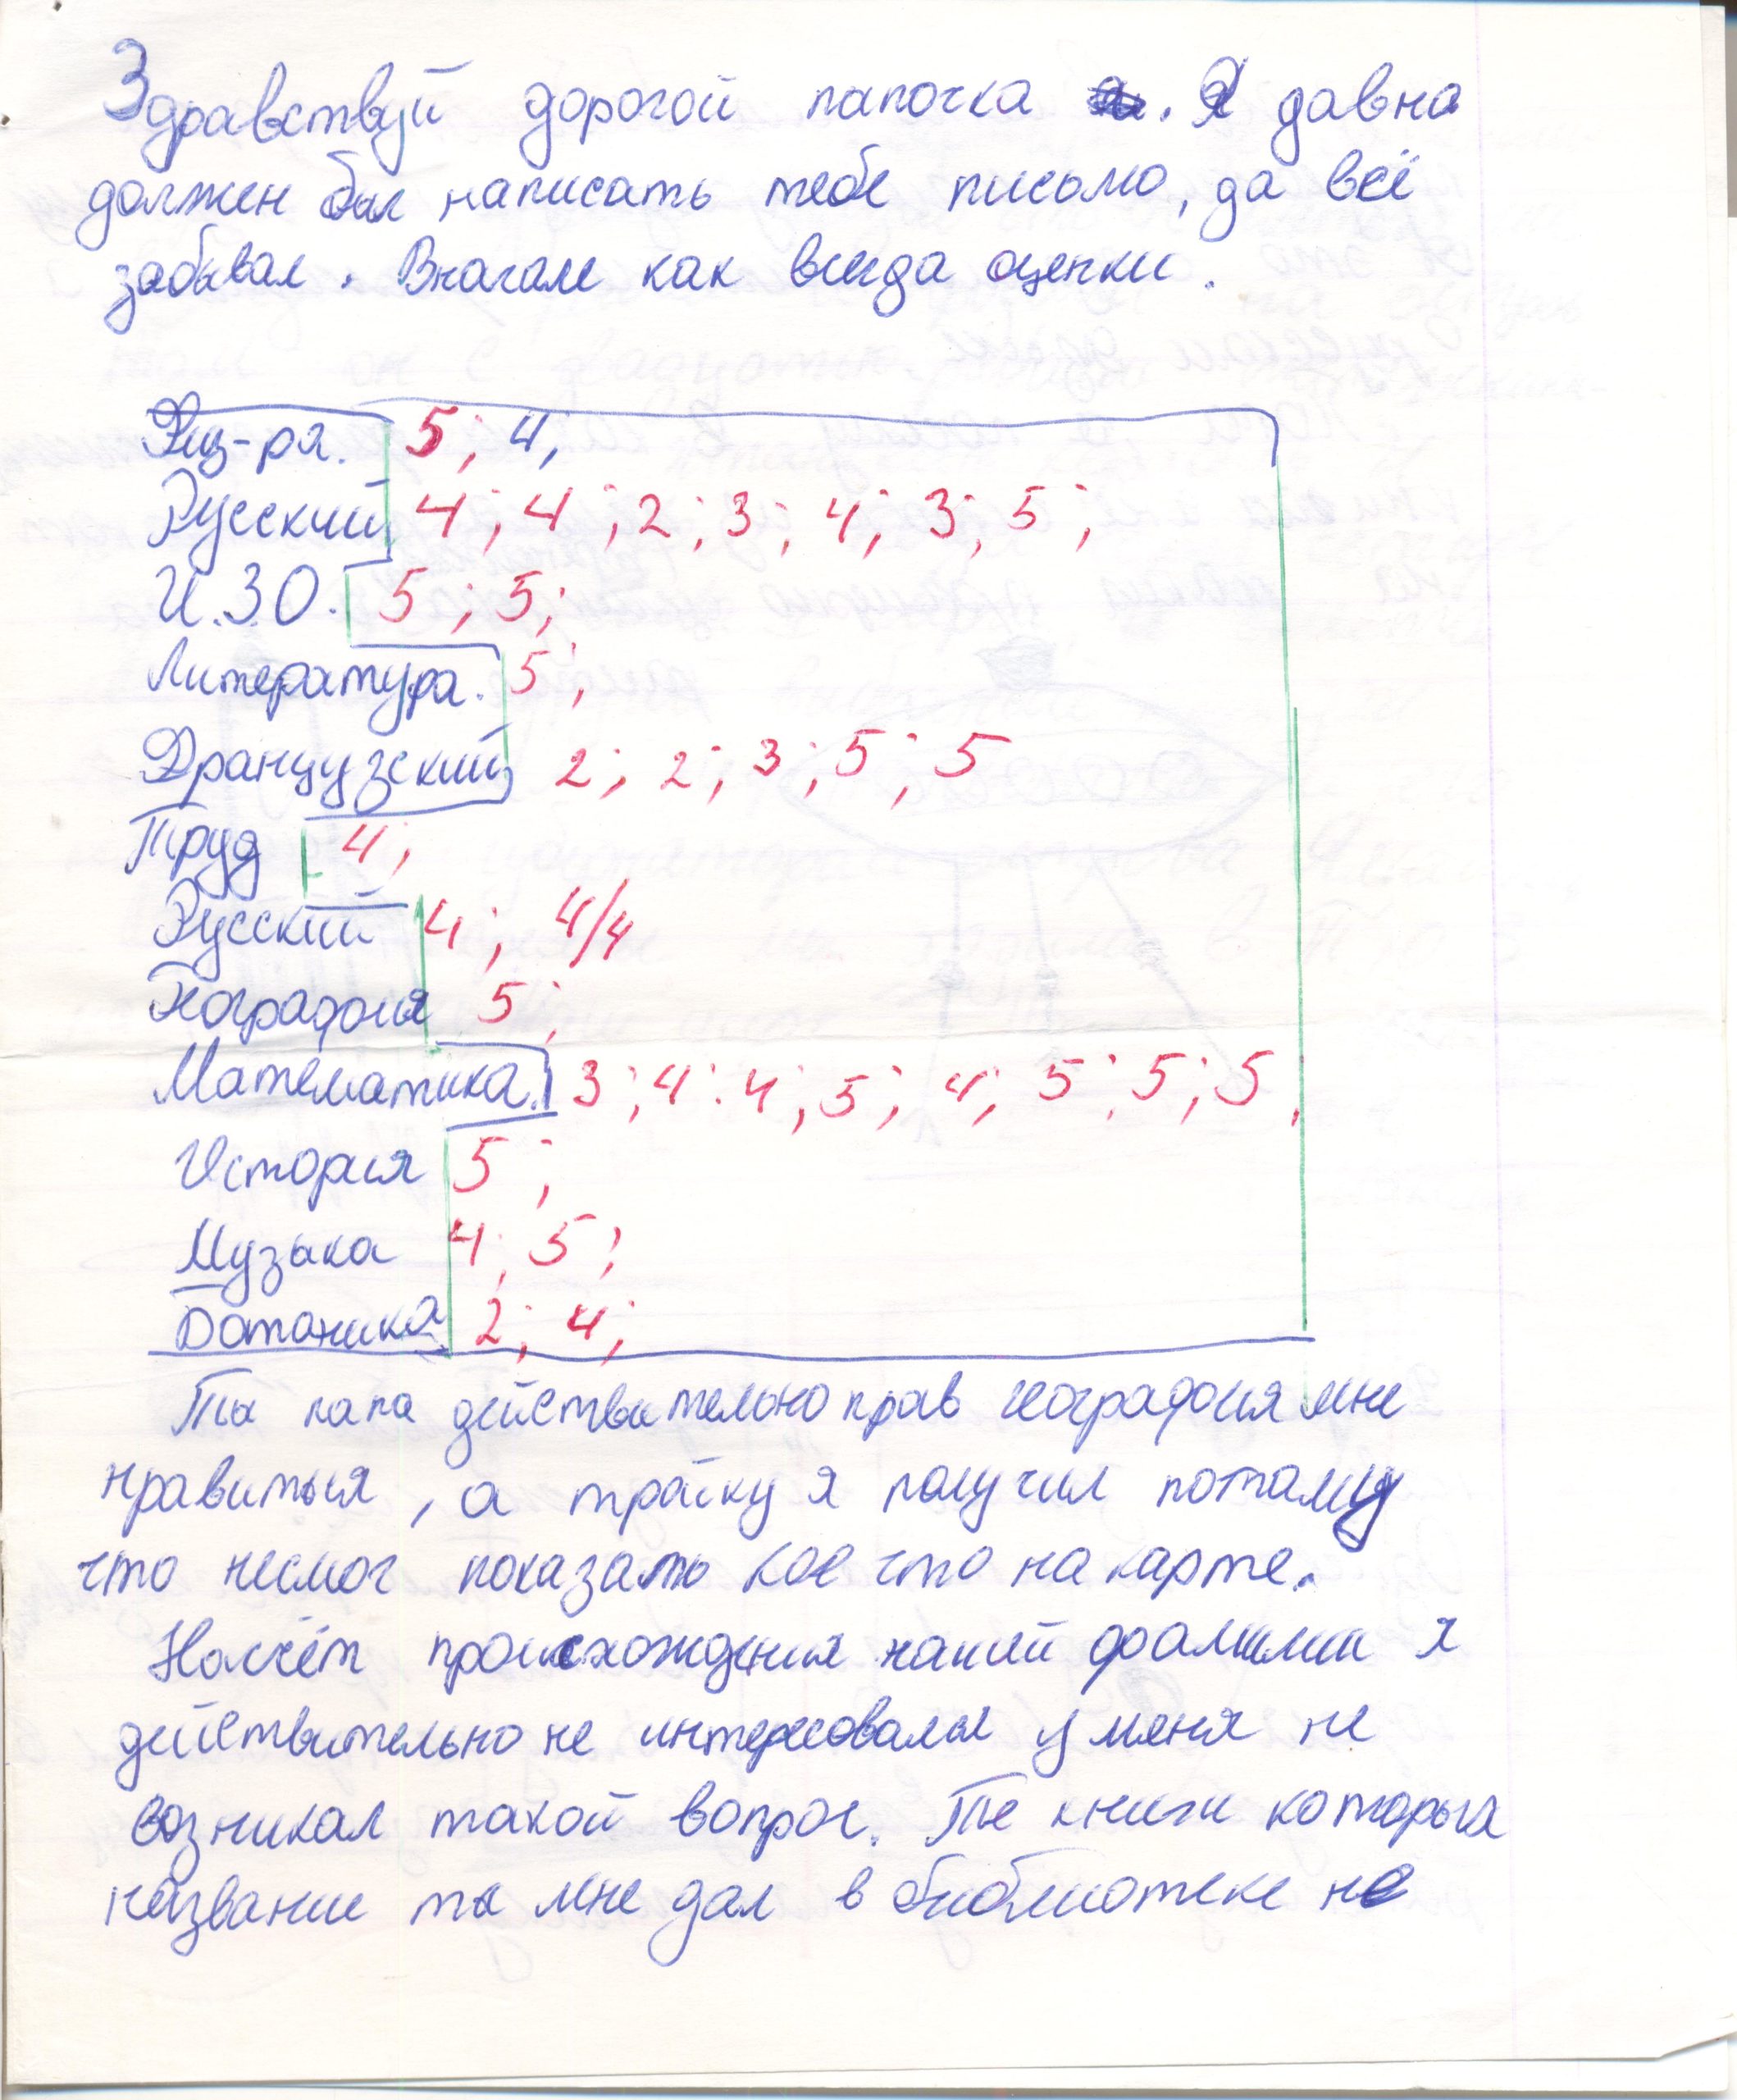 Здравствуй дорогой папочка. Я давна
должен был написать тебе письмо, да всё
забывал. Вначале как всегда оценки.
Физ-ра. 5; 4;
Русский 4; 4; 2; 3; 4; 3; 5;
И.ЗО. 5; 5;
Литература. 5;
Французский 2; 2; 3; 5; 5
Труд 4;
Русский 4; 4/4
География 5;
Математика. 3; 4; 4; 5; 4; 5; 5; 5;
История 5;
Музыка 4; 5;
Ботаника 2; 4;
Ты папа действительно прав география мне
нравиться, а тройку я получил потаму
что несмог показать кое что на карте.
Насчёт происхождения нашей фамилии я
действительно не интересовался у меня не
возникал такой вопрос. Те книги которых
название ты мне дал в библиотеке не